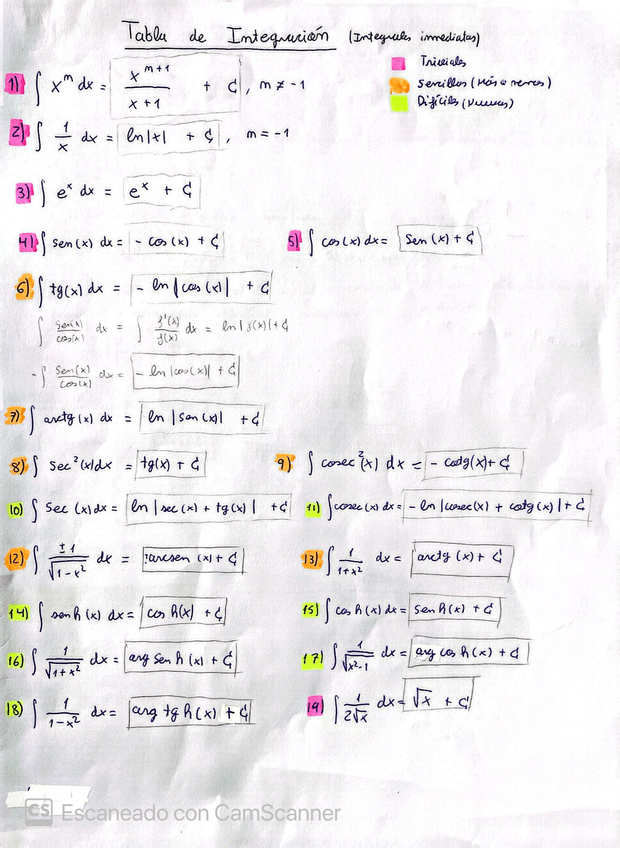 Tabla de Integración (Integrales inmediatas)
Triviales
Sencillas (Más o menos)
Difíciles (Nuevas)
1) ∫ x^m dx = x^(m+1)/(x+1) + C, m ≠ -1
2) ∫ 1/x dx = ln|x| + C, m = -1
3) ∫ e^x dx = e^x + C
4) ∫ sen(x) dx = - cos(x) + C 5) ∫ cos(x) dx = Sen(x) + C
6) ∫ tg(x) dx = - ln|cos(x)| + C
∫ sen(x)/cos(x) dx = ∫ f'(x)/f(x) dx = ln|f(x)| + C
- ∫ sen(x)/cos(x) dx = - ln|cos(x)| + C
7) ∫ arctg(x) dx = ln|sen(x)| + C
8) ∫ sec²(x) dx = tg(x) + C 9) ∫ cosec²(x) dx = - cotg(x) + C
10) ∫ sec(x) dx = ln|sec(x) + tg(x)| + C 11) ∫ cosec(x) dx = - ln|cosec(x) + cotg(x)| + C
12) ∫ ±1/√(1-x²) dx = arcsen(x) + C 13) ∫ 1/(1+x²) dx = arctg(x) + C
14) ∫ senh(x) dx = cosh(x) + C 15) ∫ cosh(x) dx = senh(x) + C
16) ∫ 1/√(1+x²) dx = arg senh(x) + C 17) ∫ 1/√(x²-1) dx = arg cosh(x) + C
18) ∫ 1/(1-x²) dx = arg tgh(x) + C 19) ∫ 1/(2√x) dx = √x + C
CS Escaneado con CamScanner